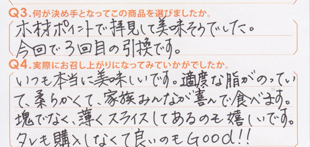 Q3.何が決め手となってこの商品を選びましたか。
木材ポイントで拝見して美味そうでした。
今回で3回目の引換です。
Q4.実際にお召し上がりになってみていかがでしたか。
いつも本当に美味しいです。適度な脂がのってい
て、柔らかくて、家族みんなが喜んで食べます。
塊でなく、薄くスライスしてあるのも嬉しいです。
タレも購入しなくて良いのもGood!!